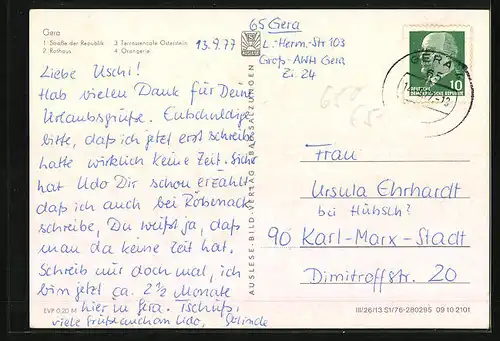 Gera
1 Straße der Republik 3 Terrassencafe Osterstein
2 Rathaus 4 Orangerie
13.9.77
65 Gera
L.-Herm.-Str 103
Groß-AWH Gera
Zi. 24
Liebe Uschi!
Hab vielen Dank für Deine
Urlaubsgrüße. Entschuldige
bitte, daß ich jetzt erst schreib,
hatte wirklich keine Zeit. Sicher
hat Udo Dir schon erzählt,
daß ich auch bei Röbenack
schreibe, Du weißt ja, daß
man da keine Zeit hat.
Schreib mir doch mal, ich
bin jetzt ca. 2 1/2 Monate
hier in Gera. Tschüß,
viele Grüße auch an Udo,
AUSLESE-BILD-VERLAG BAD SALZUNGEN
GERA
10
DEUTSCHE
DEMOKRATISCHE REPUBLIK
Frau
Ursula Ehrhardt
bei Hübsch?
90 Karl-Marx-Stadt
Dimitroffstr. 20
EVP 0,20 M
III/26/13 S1/76-280295 09 10 2101